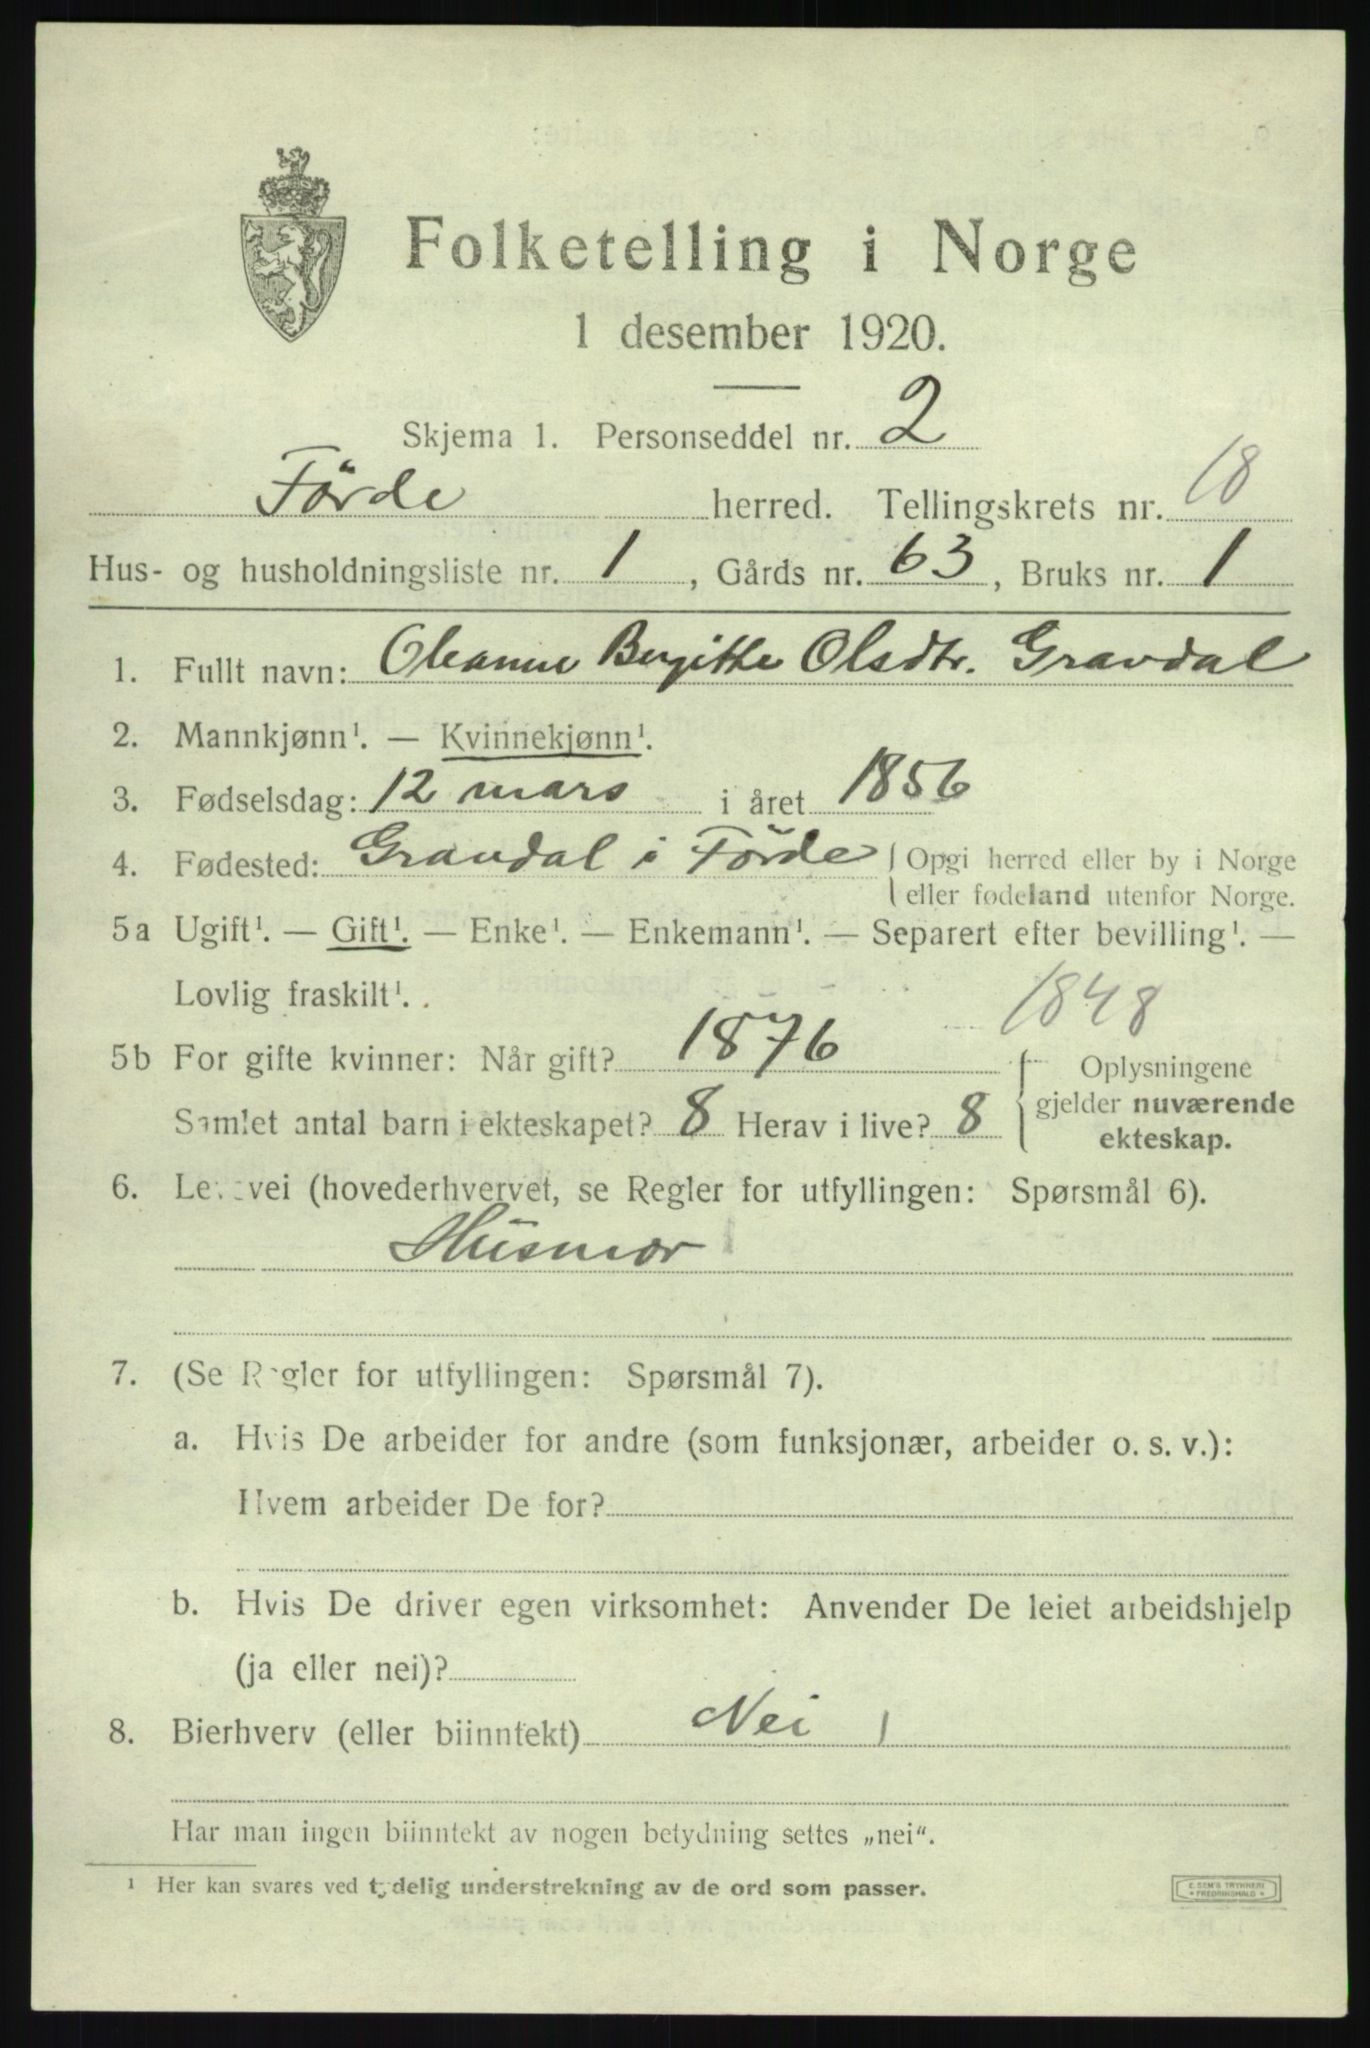 Folketelling i Norge
1 desember 1920.
Skjema 1. Personseddel nr. 2
Förde herred. Tellingskrets nr. 18
Hus- og husholdningsliste nr. 1, Gårds nr. 63, Bruks nr. 1
1. Fullt navn: Oleanne Bergitte Olsdtr. Gravdal
2. Mannkjønn¹. — Kvinnekjønn¹.
3. Fødselsdag: 12 mars i året 1856
4. Fødested: Gravdal i Förde { Opgi herred eller by i Norge
eller fødeland utenfor Norge.
5a Ugift¹. — Gift¹. — Enke¹. — Enkemann¹. — Separert efter bevilling¹. —
Lovlig fraskilt¹.
1848
5b For gifte kvinner: Når gift? 1876
Samlet antal barn i ekteskapet? 8 Herav i live? 8
Oplysningene
gjelder nuværende
ekteskap.
6. Levevei (hovederhvervet, se Regler for utfyllingen: Spørsmål 6).
Husmor
7. (Se Regler for utfyllingen: Spørsmål 7).
a. Hvis De arbeider for andre (som funksjonær, arbeider o. s. v.):
Hvem arbeider De for?
b. Hvis De driver egen virksomhet: Anvender De leiet arbeidshjelp
(ja eller nei)?
8. Bierhverv (eller biinntekt) Nei
Har man ingen biinntekt av nogen betydning settes „nei“.
¹ Her kan svares ved tydelig understrekning av de ord som passer.
E. SEM'S TRYKKERI
FREDRIKSHALD